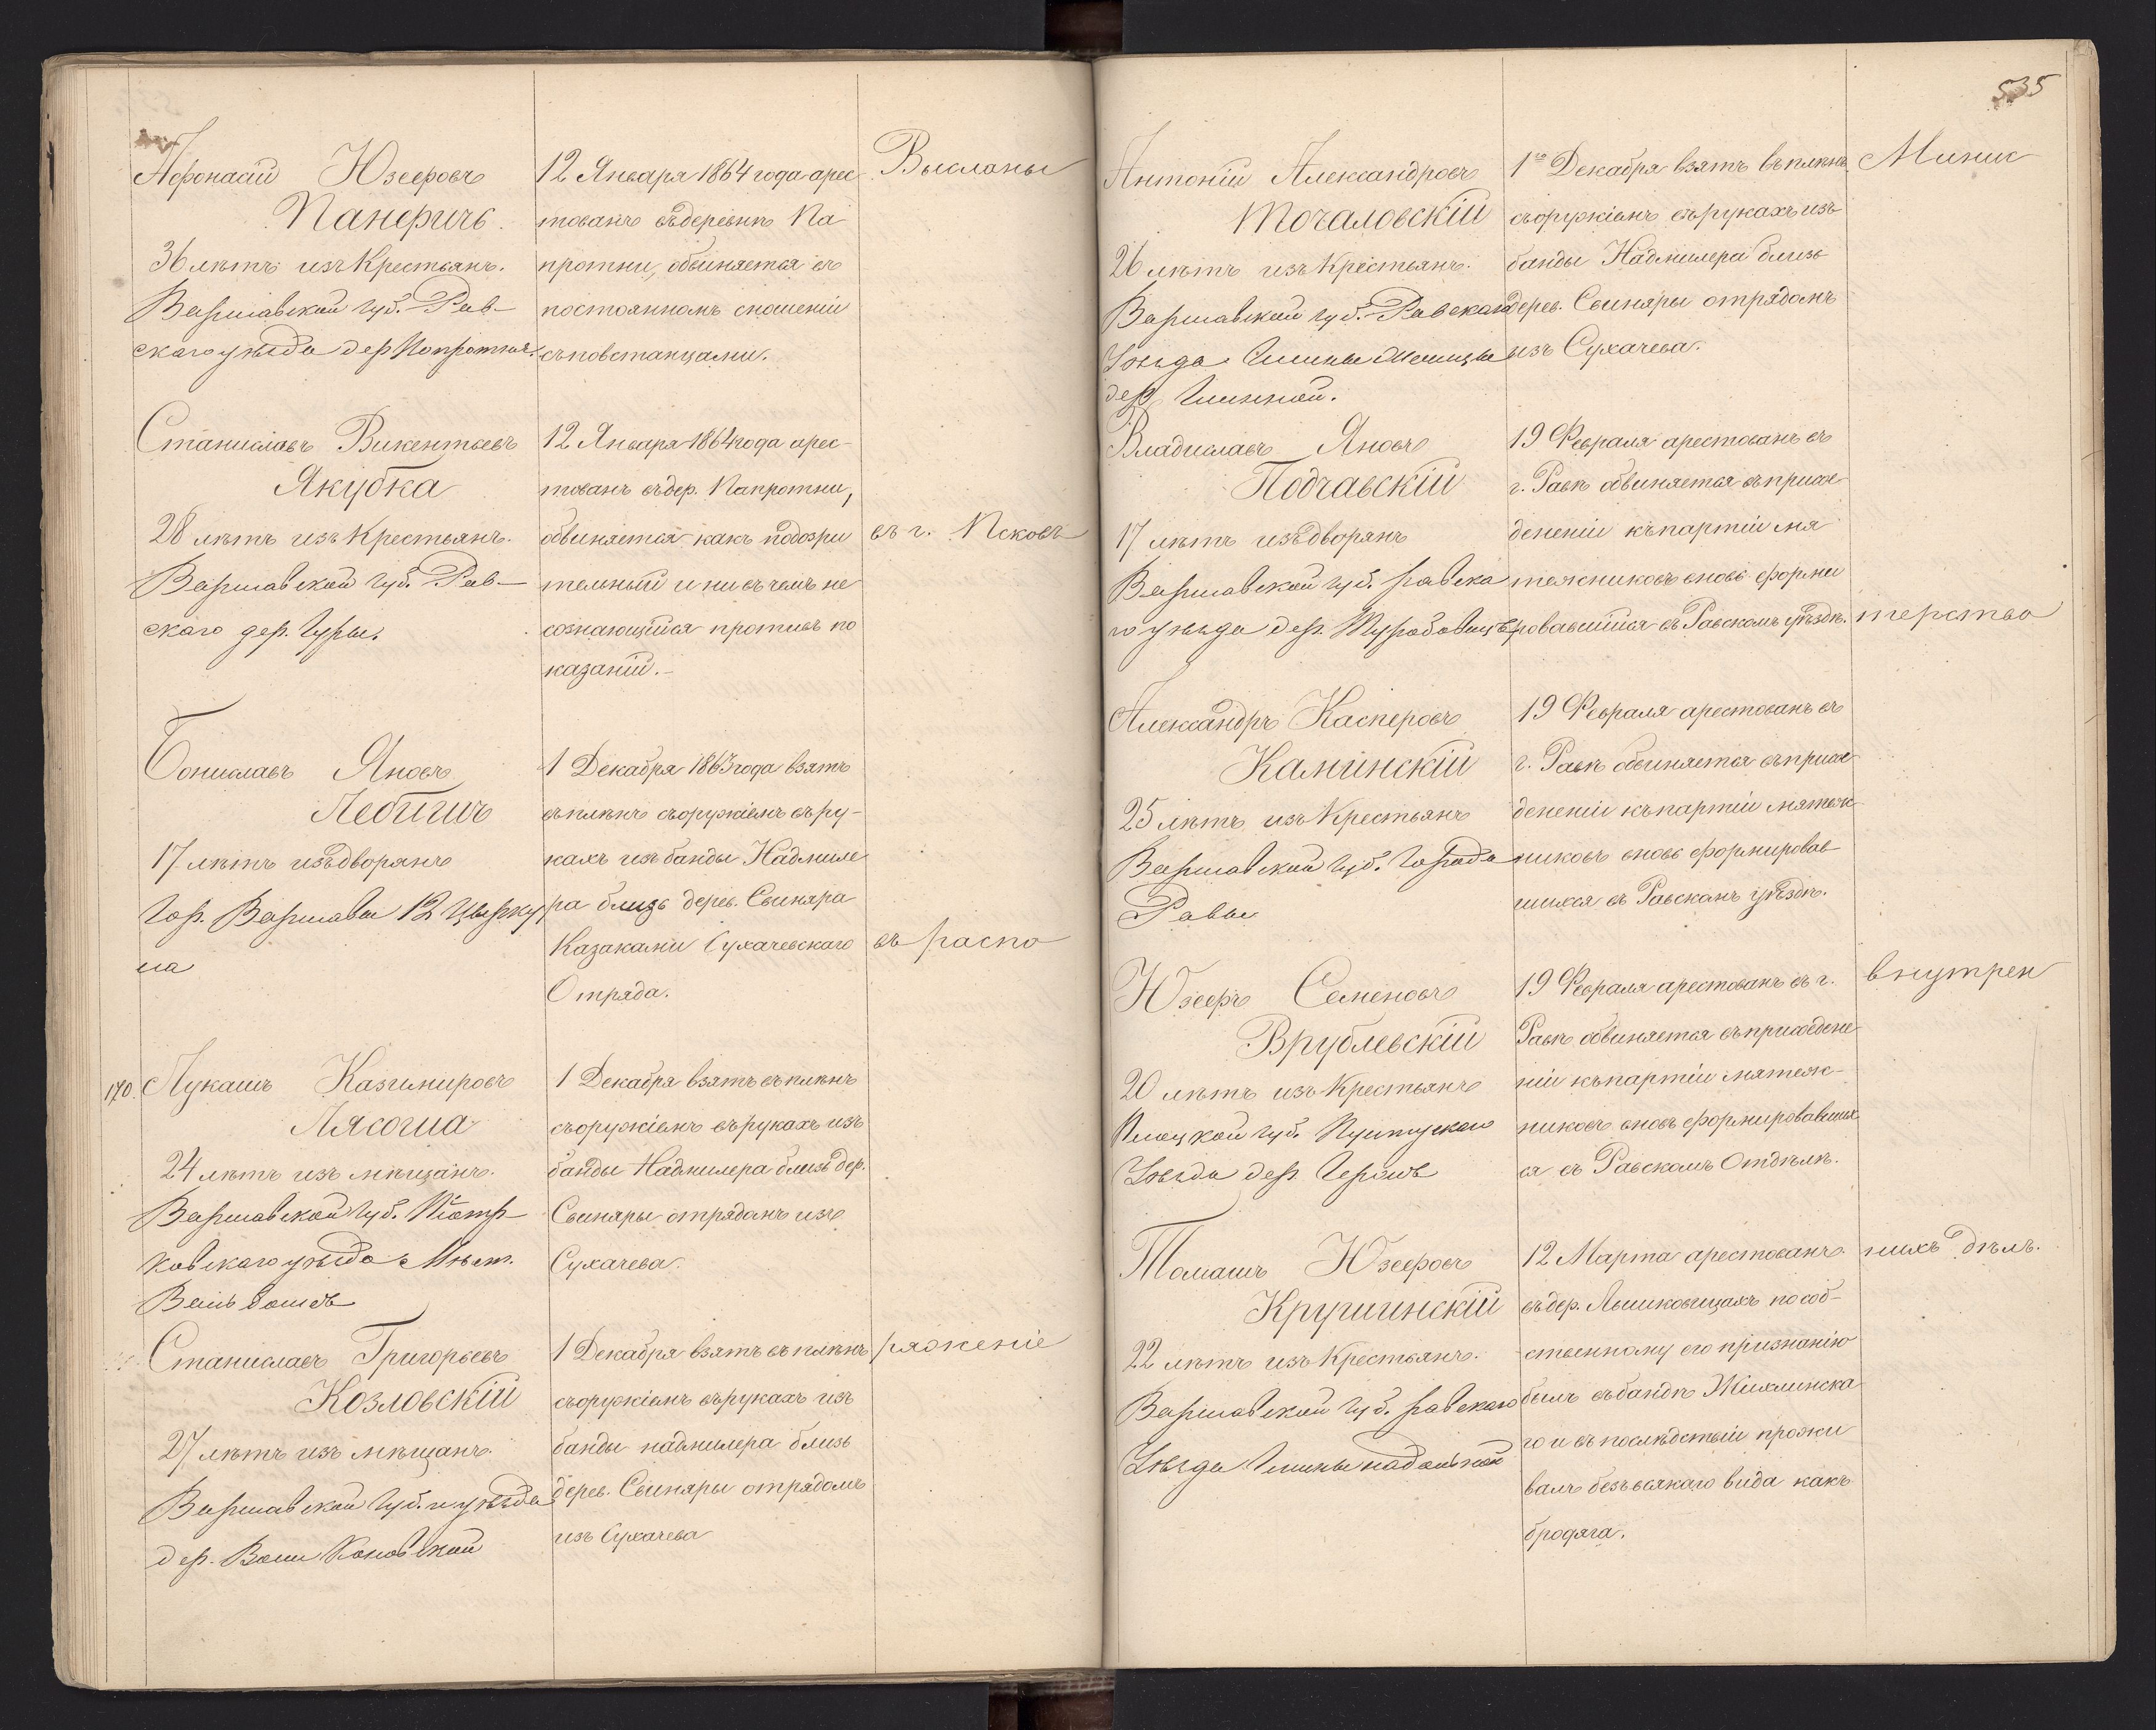 Афонасій Юзефовъ
Панфричъ.
36 лѣтъ изъ Крестьянъ.
Варшавской губ. Рав-
скаго уѣзда дер Попротни.
12 Января 1864 года арес
тованъ въ деревнѣ Па
протни, обвиняется въ
постоянномъ сношеніи
съ повстанцами.
Высланы
Станиславъ Викентьевъ
Якубка
28 лѣтъ изъ Крестьянъ.
Варшавской губ. Рав-
скаго дер. Гуры.
12 Января 1864 года арес-
тованъ въ дер. Папротни,
обвиняется какъ подозри
тельный и ни въ чемъ не
сознающійся противъ по
казаній.-
въ г. Псковъ
Бониславъ Яновъ
17 лѣтъ изъ дворянъ
Гор. Варшавы 12 Цырку
ла
1 Декабря 1863 года взятъ
въ плѣнъ съ оружіемъ въ ру-
кахъ изъ банды Надмиле
ра близь дерев. Свиняра
Казаками Сухачевскаго
Отряда.
въ распо
170. Лукашъ Казимировъ
Лясогиа
24 лѣтъ изъ мѣщанъ.
Варшавской Губ. Піотр-
ковскаго уѣзда Мѣст.
1 Декабря взятъ въ плѣнъ
съ оружіемъ въ рукахъ изъ
банды Надмилера близь дер.
Свиняры отрядомъ изъ
Сухачева.
Станиславъ Григорьевъ
Козловскій
27 лѣтъ изъ мѣщанъ.
Варшавской Губ. и уѣзда
дер. Воли
1 Декабря взятъ въ плѣнъ
съ оружіемъ въ рукахъ изъ
банды надмилера близь
дерев. Свиняры отрядомъ
изъ Сухачева
ряженіе
535
Антоній Александровъ
Точаловскій
26 лѣтъ изъ Крестьянъ.
Варшавской губ. Равскаго
Уѣзда Гмины
дер.
1го Декабря взятъ въ плѣнъ
съ оружіемъ въ рукахъ изъ
банды Надмилера близь
дерев. Свиняры отрядомъ
изъ Сухачева.
Минис
Владиславъ Яновъ
Подчавскій
17 лѣтъ изъ дворянъ
Варшавской губ. равска
го уѣзда дер.
19 Февраля арестованъ въ
г. Равѣ обвиняется въ присое
диненіи къ партіи мя
тежниковъ вновь форми
ровавшійся въ Равскомъ уѣздѣ.
терство
Александръ Касперовъ
Каминскій
25 лѣтъ изъ Крестьянъ
Варшавской губ. Города
Равы
19 Февраля арестованъ въ
г. Равѣ обвиняется въ присое
диненіи къ партіи мятеж-
никовъ вновь формировав
шихся въ Равскомъ уѣздѣ.
Юзефъ Семеновъ
Врублевскій
20 лѣтъ изъ Крестьянъ
Плоцкой губ. Пултускаго
Уѣзда дер.
19 Февраля арестованъ въ г.
Равѣ обвиняется въ присоедине
ніи къ партіи мятеж-
никовъ вновь формировавших
ся въ Равскомъ Отдѣлѣ.
внутрен
Томашъ Юзефовъ
Крушинскій
22 лѣтъ изъ Крестьянъ.
Варшавской губ. равскаго
Уѣзда Гмины
12 Марта арестованъ
въ дер. Лышковицахъ по соб-
ственному его признанію
былъ въ бандѣ Жихлинска
го и въ послѣдствіи прожи
валъ безъ всякаго вида какъ
бродяга.
нихъ дѣлъ.